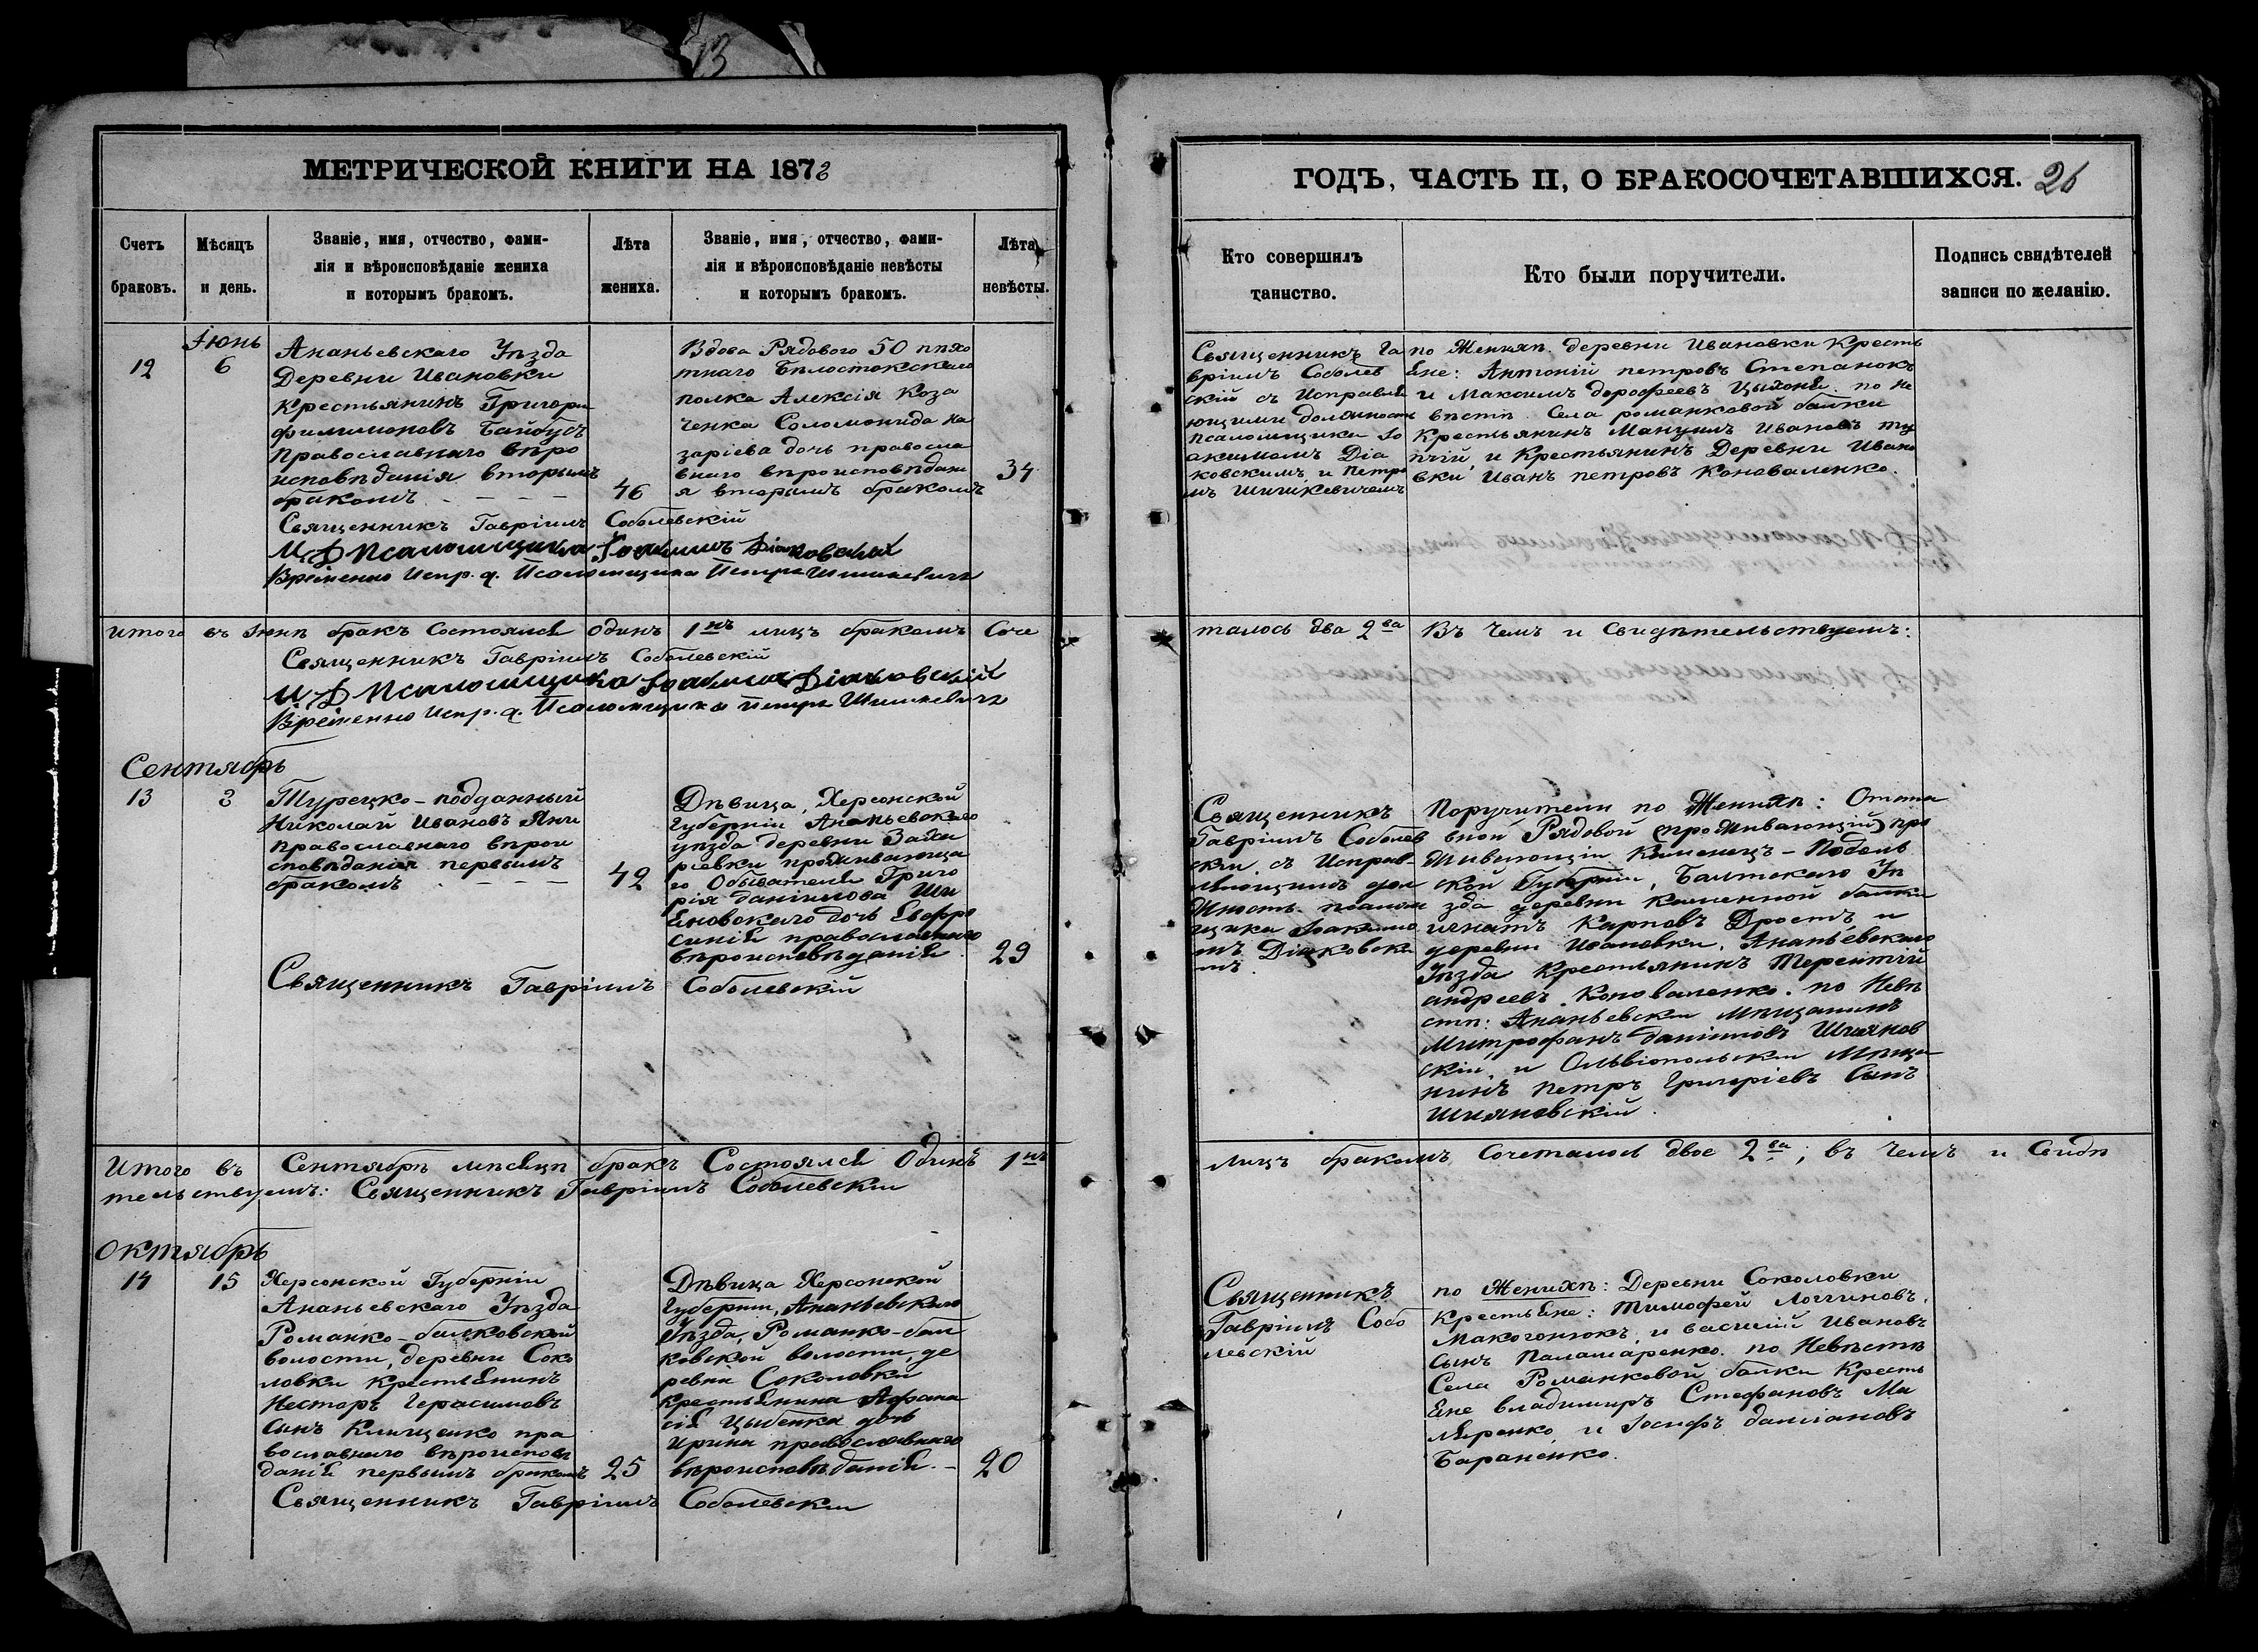 13
МЕТРИЧЕСКОЙ КНИГИ НА 1873
Счетъ
браковъ.
Мѣсяцъ
и день.
Званіе, имя, отчество, фами-
лія и вѣроисповѣданіе жениха
и которымъ бракомъ.
Лѣта
жениха.
Званіе, имя, отчество, фами-
лія и вѣроисповѣданіе невѣсты
и которымъ бракомъ.
Лѣта
невѣсты.
Іюнь
12
6
Ананьевскаго Уѣзда
Деревни Ивановки
Крестьянинъ Григори
Филимоновъ Байбузъ
Православнаго вѣро
исповѣданія вторымъ
бракомъ
46
Вдова Рядового 50 пѣхо
тнаго Бѣлостокскаго
полка Алексія Коза
ченка Соломонида На
заріева дочь правосла
внаго вѣроисповѣдані
я вторымъ бракомъ
34
Священникъ Гавріилъ Соболевскій
И. Д. Псаломщика Іоакимъ Діаковскій
Временно Испр. д. Псаломщика Петръ Шишкевичъ
Итого въ Іюнѣ бракъ Состоялся одинъ 1нъ лицъ бракомъ Соче
Священникъ Гавріилъ Соболевскій
И. Д. Псаломщика Іоакимъ Діаковскій
Временно Испр. д. Псаломщика Петръ Шишкевичъ
Сентябрь
13
3
Турецко-подданный
Николай Ивановъ Яни
православнаго вѣрои
сповѣданія первымъ
бракомъ
42
Дѣвица, Херсонской
Губерніи Ананьевскаго
уѣзда деревни Заха
ріевки проживающа
го Обывателя Григо
рія Даніилова Ши
яновскаго дочь Евфро
синія православнаго
вѣроисповѣданія
29
Священникъ Гавріилъ Соболевскій
Итого въ Сентябрѣ мѣсяцѣ бракъ Состоялся Одинъ 1нъ
тельствуемъ: Священникъ Гавріилъ Соболевскій
Октябрь
14
15
Херсонской Губерніи
Ананьевскаго Уѣзда
Романко-балковской
волости, деревни Соко
ловки крестьянинъ
Несторъ Герасимовъ
сынъ Клищенко пра
вославнаго вѣроисповѣ
данія первымъ бракомъ
25
Дѣвица Херсонской
Губерніи, Ананьевскаго
Уѣзда, Романко-бал
ковской волости, де
ревни Соколовки
крестьянина Афана
сія Цыбенка дочь
Ирина православнаго
вѣроисповѣданія.
20
Священникъ Гавріилъ Соболевскій
ГОДЪ, ЧАСТЬ II, О БРАКОСОЧЕТАВШИХСЯ. 26
Кто совершилъ
таинство.
Кто были поручители.
Подпись свидѣтелей
записи по желанію.
Священникъ Га
вріилъ Соболев
скій съ Исправля
ющими должность
псаломщика Іо
акимомъ Діа
ковскимъ и Петро
мъ Шишкевичемъ
по Женихѣ. деревни Ивановки Кресть
яне: Антоній петровъ Степанокъ
и Максимъ дорофеевъ Цыхоня. по не
вѣстѣ. Села романковой балки
Крестьянинъ Мануилъ Ивановъ
и Крестьянинъ Деревни Ивано
вки Иванъ петровъ Коноваленко.
талось два 2ва Въ чемъ и Свидѣтельствуемъ:
Священникъ
Гавріилъ Соболев
скій съ Исправ-
ляющимъ дол
жность псалом
щика Іоакимо
мъ Діаковски
мъ
Поручители по Женихѣ: Отста
вной Рядовой (проживающій) про
живающій Каменецъ-Подоль
ской Губерніи, Балтскаго Уѣ
зда деревни Каменной балки
игнатъ Карповъ Дростъ, и
деревни Ивановки, Ананьевскаго
Уѣзда Крестьянинъ Терентій
андреевъ Коноваленко. по Невѣ
стѣ: Ананьевскій мѣщанинъ
Митрофанъ Даніиловъ Шиянов
скій и Ольвіопольскій Мѣща
нинъ Петръ Григоріевъ Сынъ
Шияновскій.
лицъ бракомъ сочеталось двое 2ва; въ чемъ и Свидѣ
Священникъ
Гавріилъ Собо
левскій
по Женихѣ: Деревни Соколовки
Крестьяне: Тимофей Логгиновъ
Макогонюкъ и василій Ивановъ
сынъ Паламаренко. по Невѣстѣ
Села Романковой балки Кресть
яне владимиръ Стефановъ Ма
ляренко, и Іосифъ даміановъ
Бараненко.